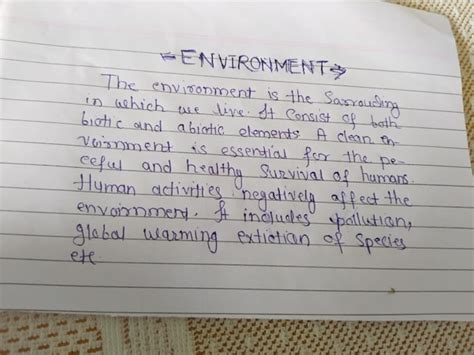 ENVIRONMENT
The environment is the Sarrouding
in which we live. It Consist of both
biotic and abiotic elements. A clean en-
veirnment is essential for the pe-
ceful and healthy Survival of humans.
Human activities negatively affect the
envoirnment. It includes pollution,
global warming extiction of Species
etc